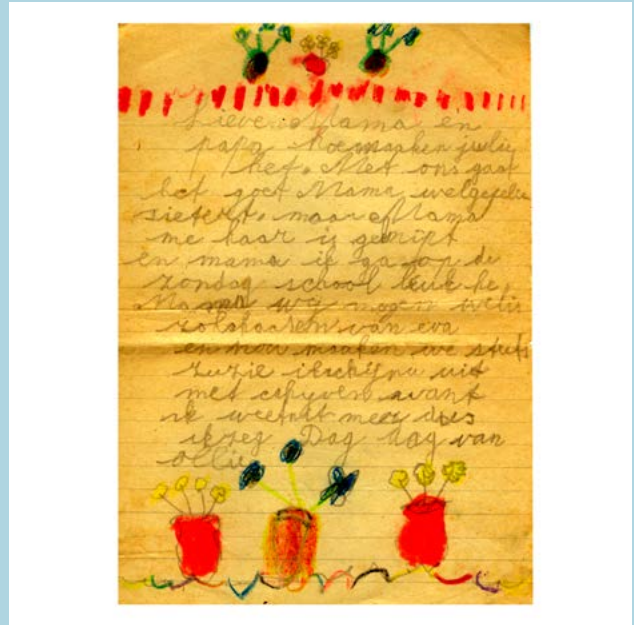 Lieve Mama en
papa hoe maken julie
het. Met ons gaat
het goet Mama
maar Mama
me haar is geknipt
en mama ik ga op de
zondag school leuk he
Mama wy mogen
van eva
en nou maaken we steets
ruzie ik schy nu uit
met schyven want
ik weet niet meer dus
ik zeg Dag dag van
ollie